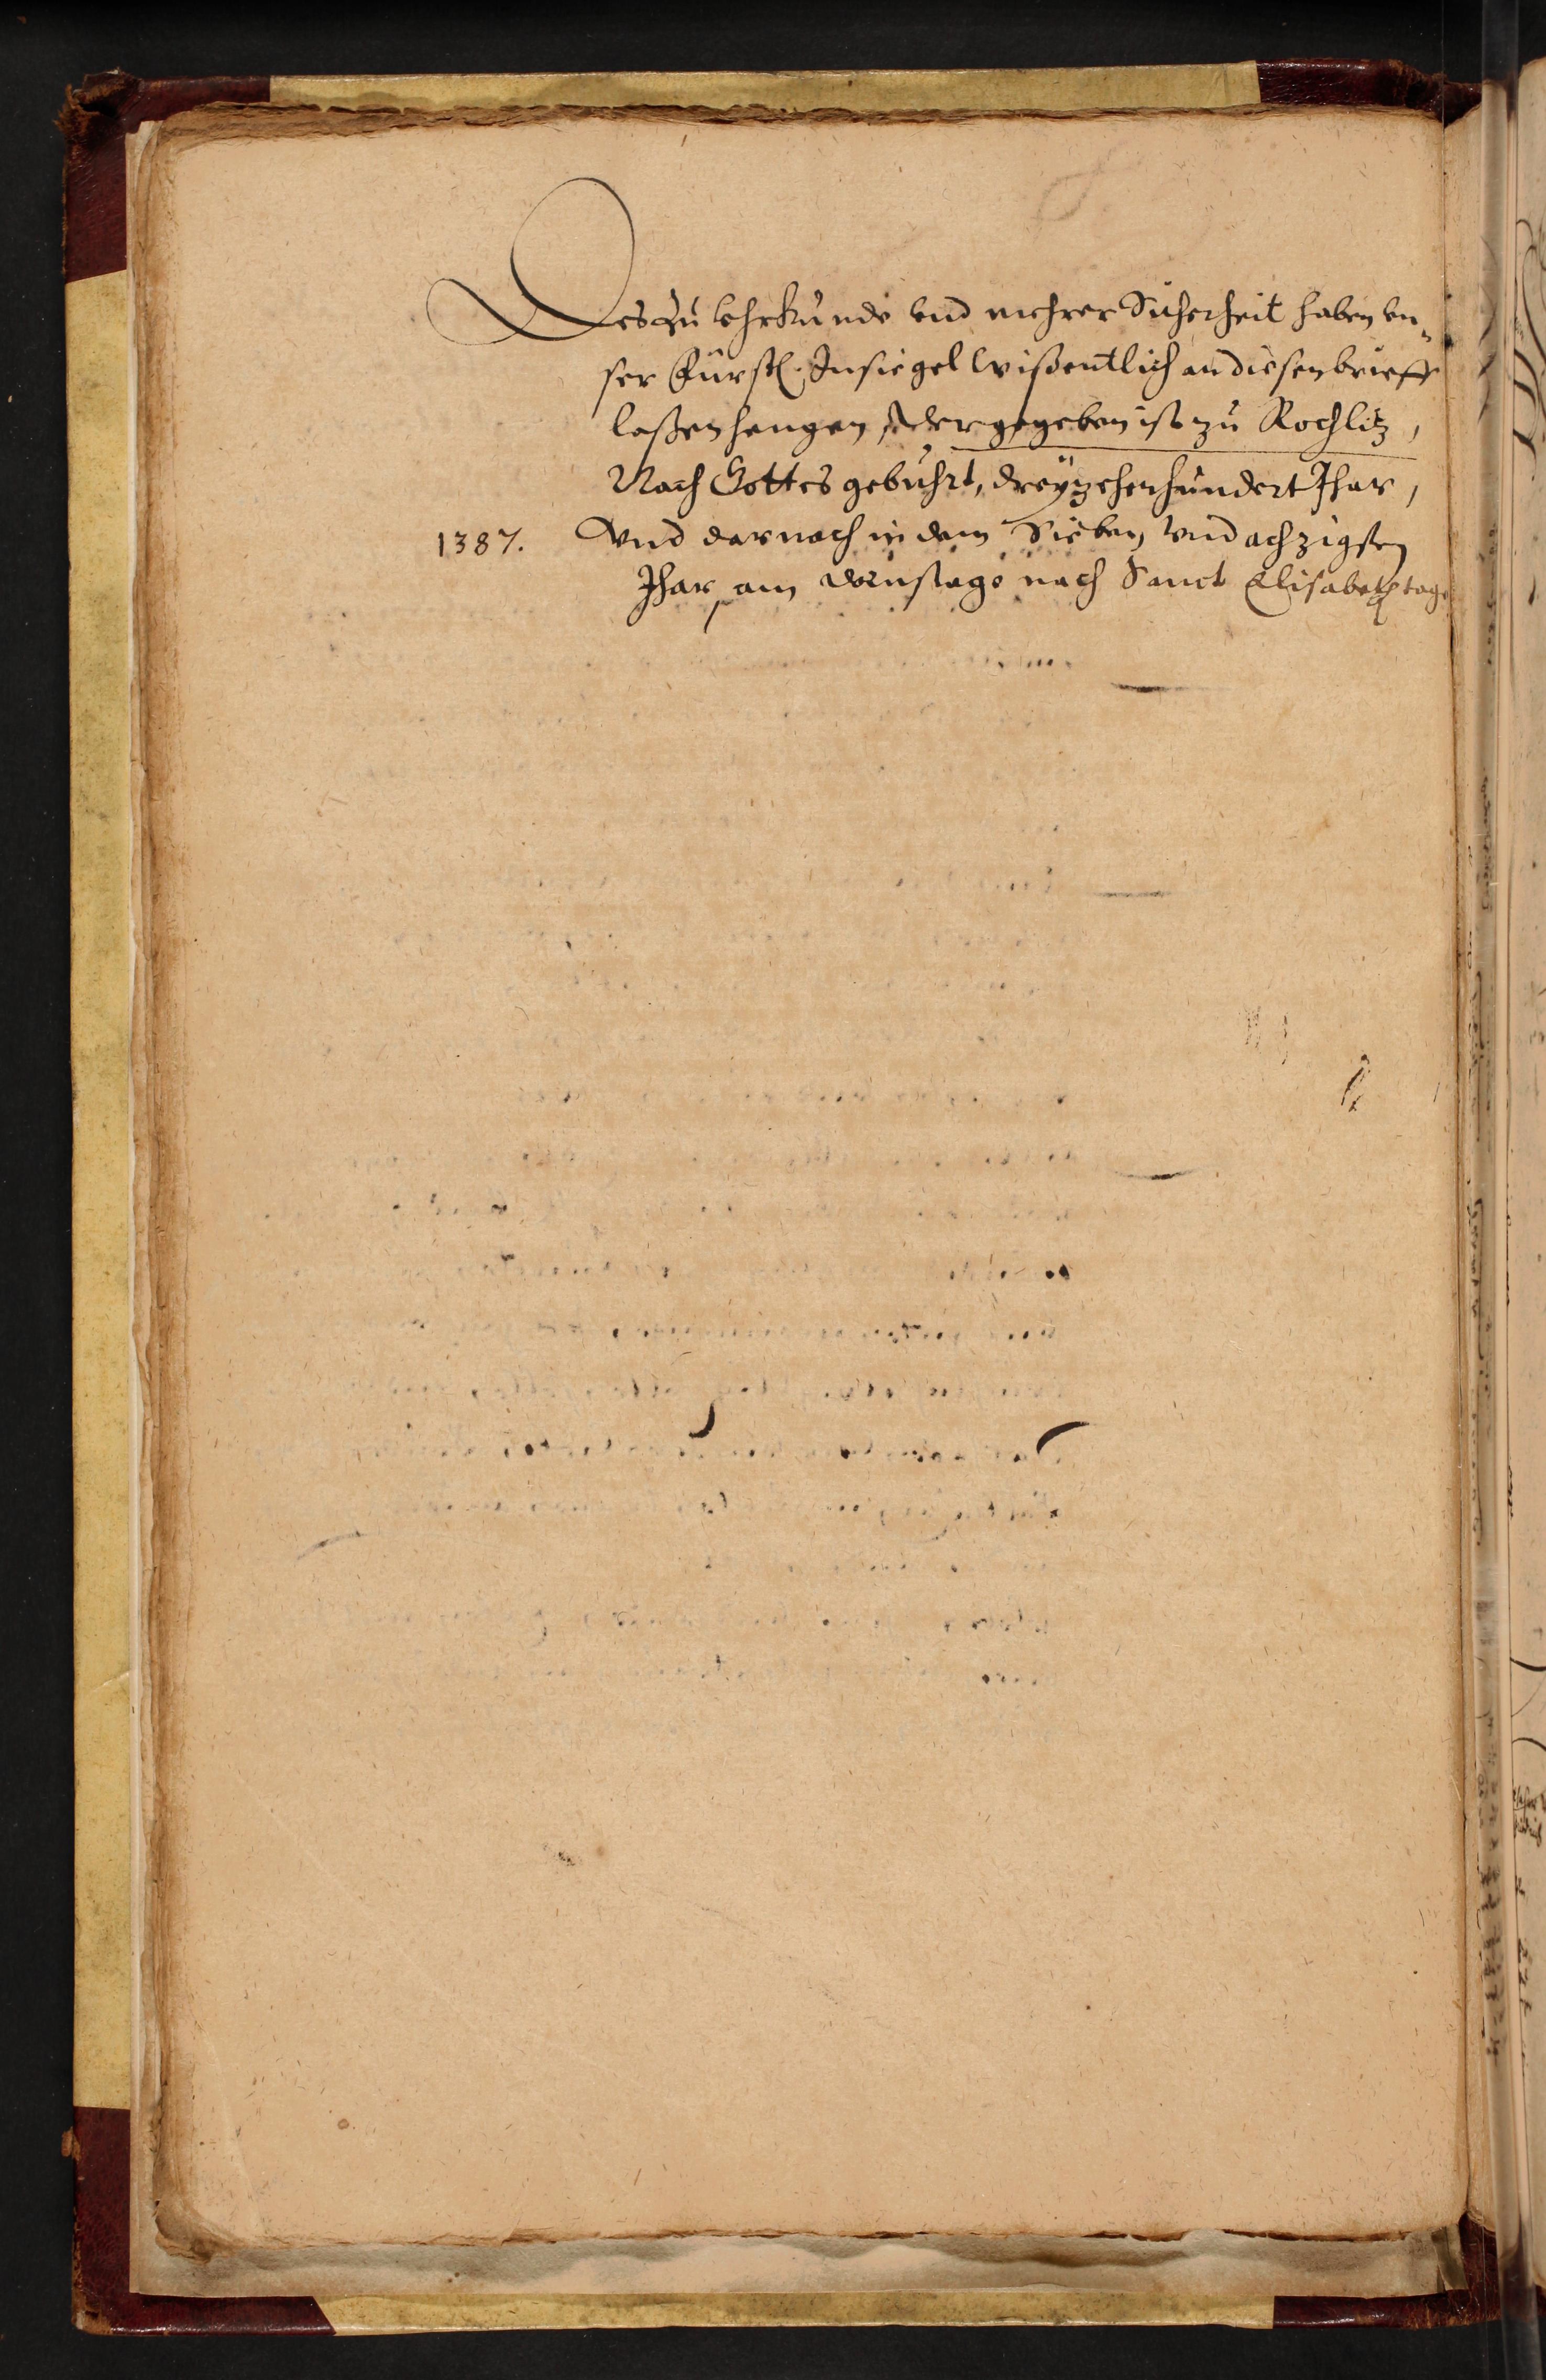 Des zu Vhrkunde vnd mehrer Sicherheit haben vn„
ser Fürstl. Insiegel wißentlich an diesen brieff
laßen hengen, der gegeben ist zu Rochlitz,
Nach Gottes gebuhrt, dreÿzehenhundert Jhar,
1387. Vnd darnach in dem Sieben vnd achzigsten
Jhar, am dinstage nach Sanct Elisabeth tage